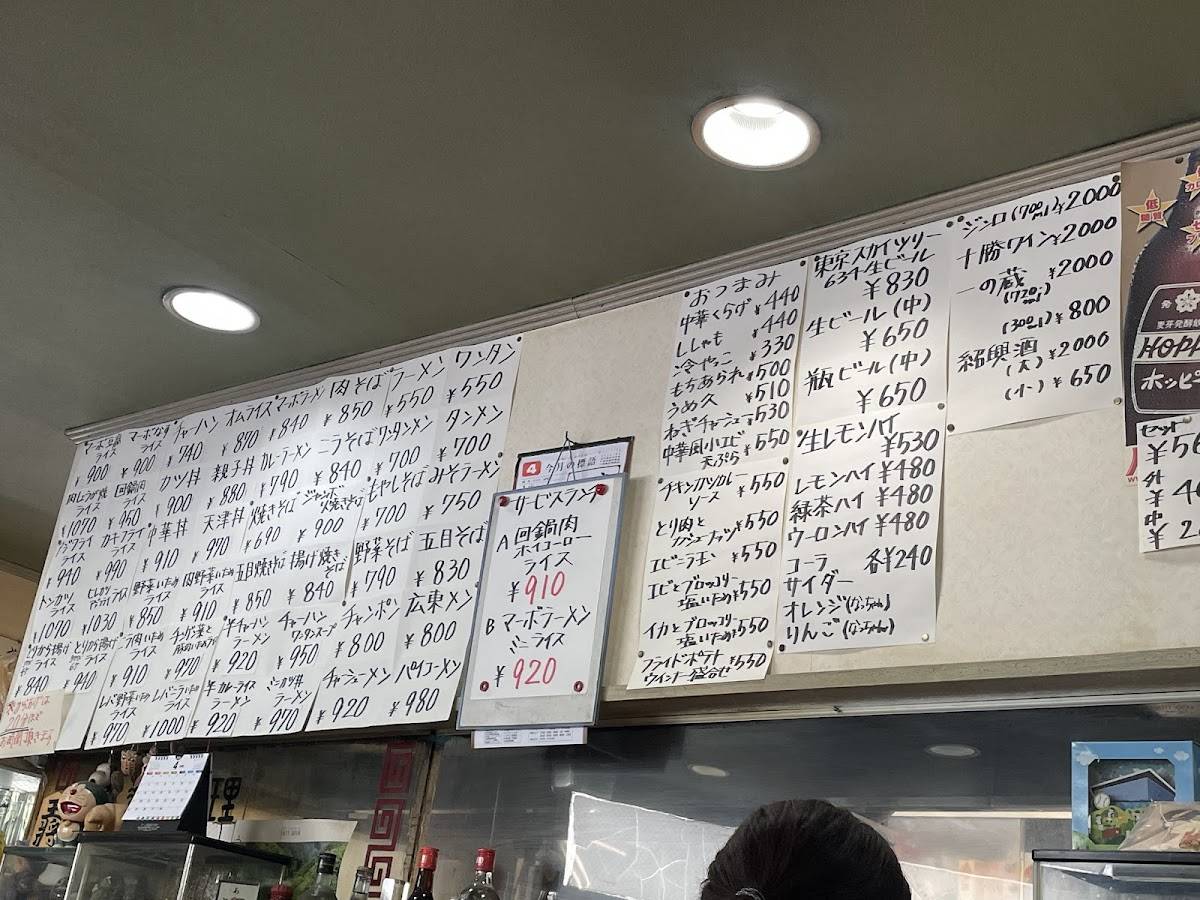 ワンタン
¥550
ラーメン
¥550
肉そば
¥850
マーボラーメン
¥840
オムライス
¥870
チャーハン
¥740
マーボなす
ライス
¥900
マーボ豆腐
ライス
¥900
タンメン
¥700
ワンタンメン
¥700
ニラそば
¥840
カレーラーメン
¥790
親子丼
¥880
カツ丼
¥900
回鍋肉
ライス
¥950
肉しょうが焼
ライス
¥1070
みそラーメン
¥750
もやしそば
¥700
ジャンボ
焼きそば
¥900
焼きそば
¥690
天津丼
¥970
中華丼
¥910
カキフライ
ライス
¥990
ライス
¥940
五目そば
¥830
野菜そば
¥790
揚げ焼き
そば
¥840
五目焼きそば
¥850
肉野菜いため
ライス
¥910
野菜いため
ライス
¥850
¥1030
トンカツ
ライス
¥1070
広東メン
¥800
チャンポン
¥800
チャーハン
ワンタンスープ
¥950
半チャーハン
ラーメン
¥920
¥970
ニラ肉いため
ライス
¥910
とりから揚げ
¥940
とりから揚げ
ライス
¥840
パイコーメン
¥980
チャシューメン
¥920
ミニカツ丼
ラーメン
¥970
半カレーライス
ラーメン
¥920
レバニラいため
ライス
¥1000
レバ野菜いため
ライス
¥970
4
今月の標語
サービスランチ
A 回鍋肉
ホイコーロー
ライス
¥910
B マーボラーメン
ミニライス
¥920
おつまみ
中華くらげ ¥440
ししゃも ¥440
冷やっこ ¥330
もちあられ ¥500
うめ久 ¥510
ねぎチャーシュー ¥530
中華風小エビ
天ぷら ¥550
チキンカツカレー
ソース ¥550
とり肉と
カシューナッツ ¥550
エビニラ玉 ¥550
エビとブロッコリー
塩いため ¥550
イカとブロッコリー
塩いため ¥550
フライドポテト
ウインナー盛合せ ¥550
東京スカイツリー
634生ビール
¥830
生ビール(中)
¥650
瓶ビール(中)
¥650
生レモンハイ
¥530
レモンハイ ¥480
緑茶ハイ ¥480
ウーロンハイ ¥480
コーラ 各¥240
サイダー
オレンジ(なっちゃん)
りんご(なっちゃん)
ジンロ(700ml) ¥2000
十勝ワイン ¥2000
一の蔵 ¥2000
(720ml)
(300ml) ¥800
紹興酒
(大) ¥2000
(小) ¥650
低
糖質
麦芽発酵
HOPP
ホッピ
セット
外
中
理